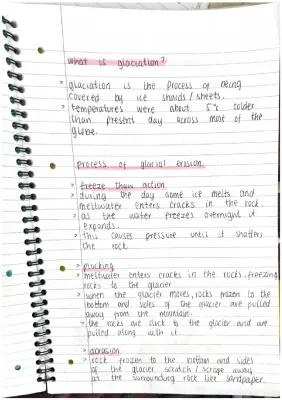 what is glaciation?
> glaciation is the process of being
covered by ice shards / sheets.
> temperatures were about 5°c colder
than present day across most of the
globe.
process of glacial erosion.
> freeze thaw action
> during the day some ice melts and
meltwater enters cracks in the rock.
> as the water freezes overnight it
expands.
> this causes pressure until it shatters
the rock
> plucking
> meltwater enters cracks in the rocks, freezing
rocks to the glacier
> when the glacier moves, rocks frozen to the
bottom and sides of the glacier are pulled
away from the mountain.
> the rocks are stuck to the glacier and are
pulled along with it.
> abrasion
> rock frozen to the bottom and sides
of the glacier scratch / scrape away
at the surrounding rock like sandpaper.